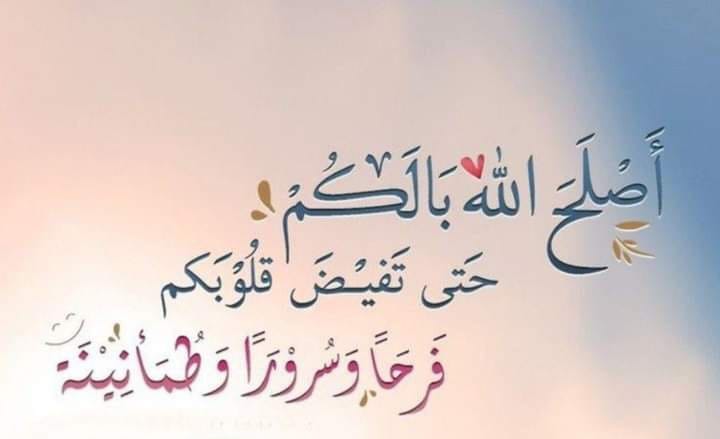 أَصْلَحَ اللهُ بَالَكُمْ
حَتى تَفيْضَ قلُوْبَكم
فَرحَاً وَسُروْرَاً وَطُمَأنِيْنَة